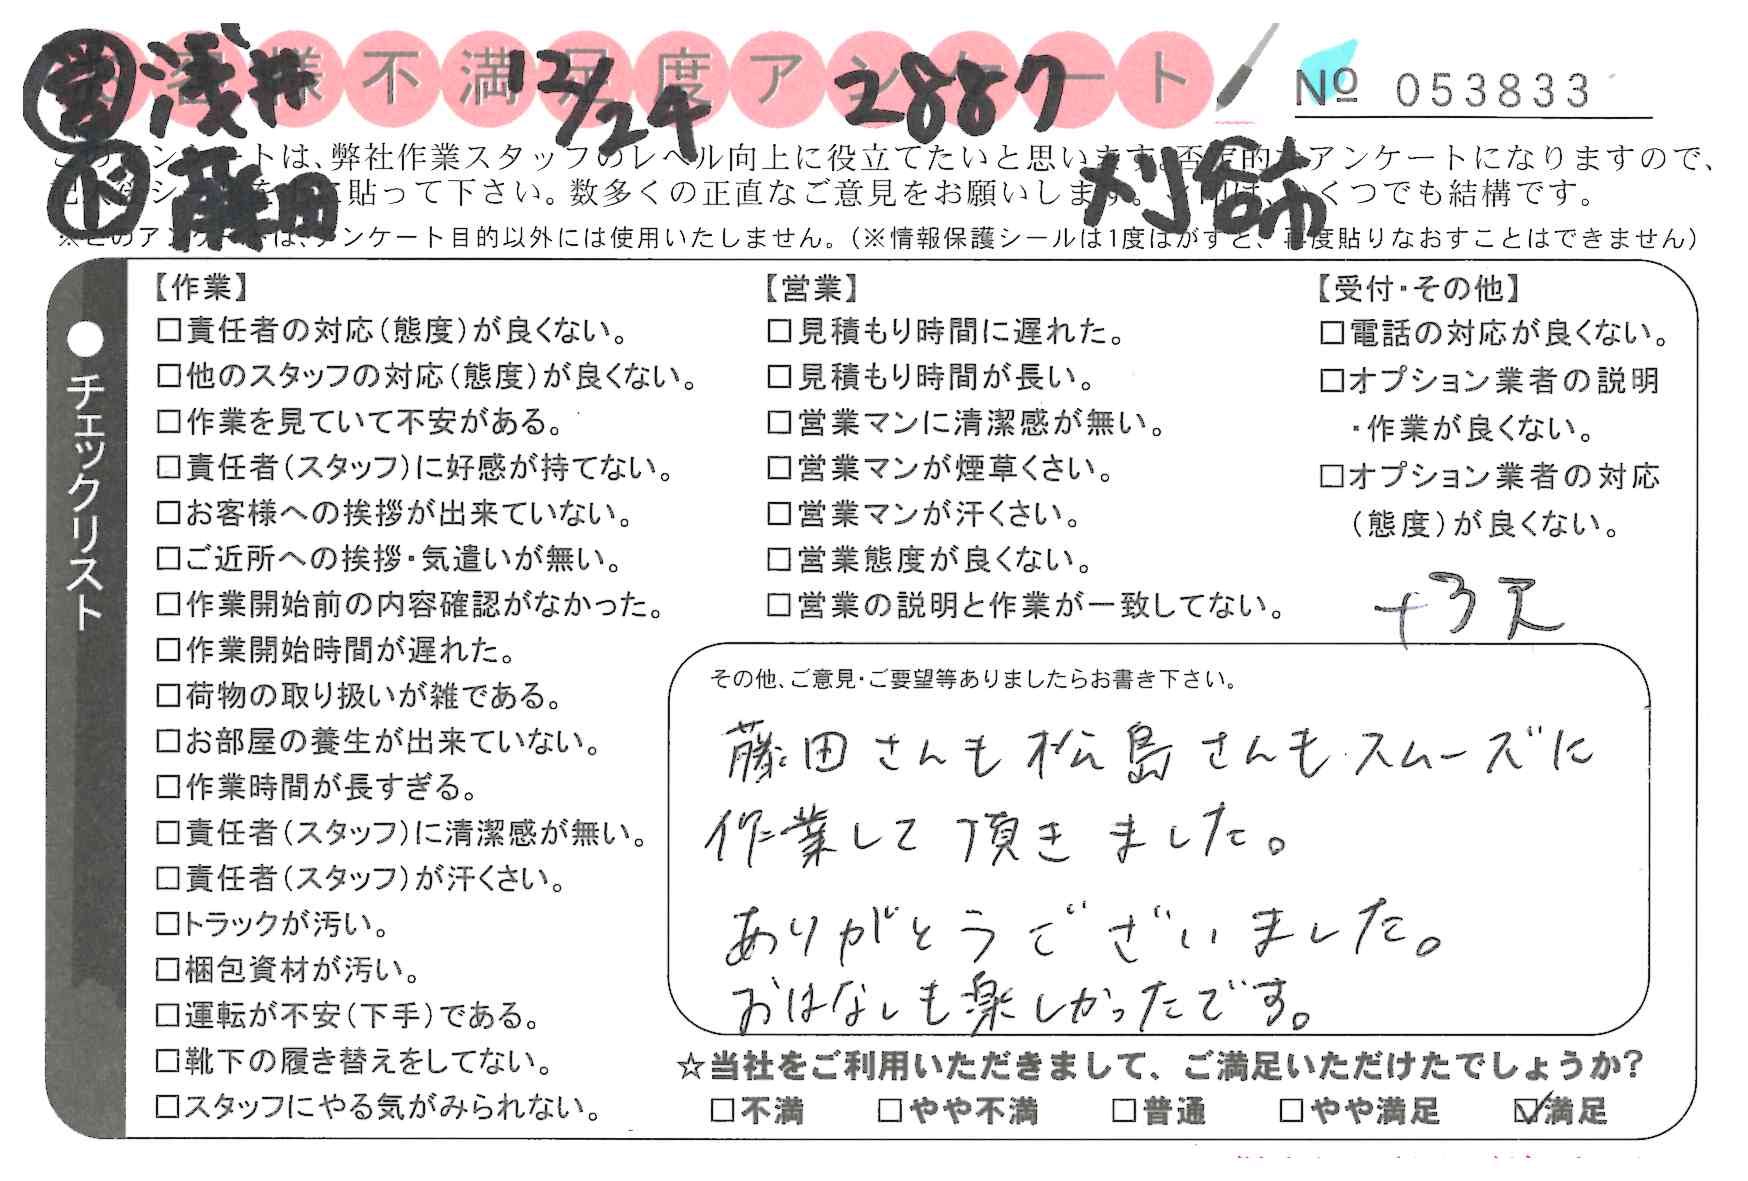 営 浅井 12/24 2887
お客様不満足度アンケート
№ 053833
このアンケートは、弊社作業スタッフのレベル向上に役立てたいと思います。否定的なアンケートになりますので、
貼って下さい。数多くの正直なご意見をお願いします。 いくつでも結構です。
藤田 刈谷市
※このアンケートは、アンケート目的以外には使用いたしません。(※情報保護シールは1度はがすと、再度貼りなおすことはできません)
●チェックリスト
【作業】
□責任者の対応(態度)が良くない。
□他のスタッフの対応(態度)が良くない。
□作業を見ていて不安がある。
□責任者(スタッフ)に好感が持てない。
□お客様への挨拶が出来ていない。
□ご近所への挨拶・気遣いが無い。
□作業開始前の内容確認がなかった。
□作業開始時間が遅れた。
□荷物の取り扱いが雑である。
□お部屋の養生が出来ていない。
□作業時間が長すぎる。
□責任者(スタッフ)に清潔感が無い。
□責任者(スタッフ)が汗くさい。
□トラックが汚い。
□梱包資材が汚い。
□運転が不安(下手)である。
□靴下の履き替えをしてない。
□スタッフにやる気がみられない。
【営業】
□見積もり時間に遅れた。
□見積もり時間が長い。
□営業マンに清潔感が無い。
□営業マンが煙草くさい。
□営業マンが汗くさい。
□営業態度が良くない。
□営業の説明と作業が一致してない。
【受付・その他】
□電話の対応が良くない。
□オプション業者の説明
・作業が良くない。
□オプション業者の対応
(態度)が良くない。
+3
その他、ご意見・ご要望等ありましたらお書き下さい。
藤田さんも松島さんもスムーズに
作業して頂きました。
ありがとうございました。
おはなしも楽しかったです。
☆当社をご利用いただきまして、ご満足いただけたでしょうか?
□不満 □やや不満 □普通 □やや満足 ☑満足